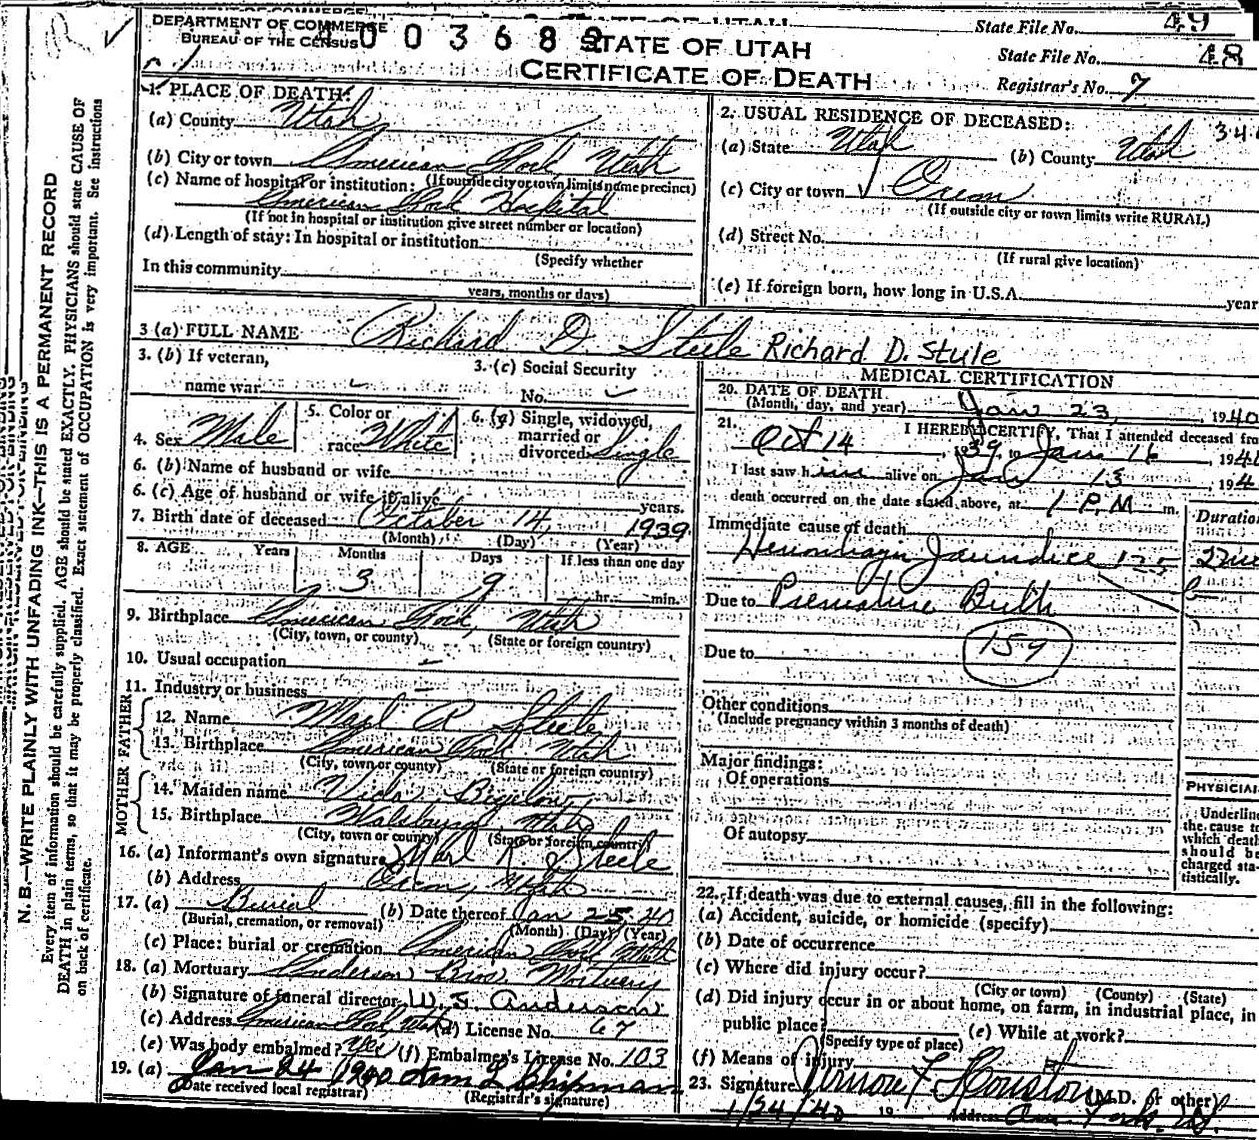 DEPARTMENT OF COMMERCE
BUREAU OF THE CENSUS
STATE OF UTAH
CERTIFICATE OF DEATH
State File No. 49
State File No. 48
Registrar's No. 7
1. PLACE OF DEATH:
(a) County Utah
(b) City or town American Fork, Utah
(If outside city or town limits name precinct)
(c) Name of hospital or institution:
American Fork Hospital
(If not in hospital or institution give street number or location)
(d) Length of stay: In hospital or institution
(Specify whether
In this community
years, months or days)
2. USUAL RESIDENCE OF DECEASED:
(a) State Utah (b) County Utah
(c) City or town Orem
(If outside city or town limits write RURAL)
(d) Street No.
(If rural give location)
(e) If foreign born, how long in U.S.A. year
3 (a) FULL NAME Richard D. Steele Richard D. Stule
3. (b) If veteran,
name war
3. (c) Social Security
No.
4. Sex Male
5. Color or
race White
6. (a) Single, widowed,
married or
divorced Single
6. (b) Name of husband or wife
6. (c) Age of husband or wife if alive years.
7. Birth date of deceased October 14, 1939
(Month) (Day) (Year)
8. AGE Years Months Days If less than one day
3 9 hr. min.
9. Birthplace American Fork, Utah
(City, town, or county) (State or foreign country)
10. Usual occupation
11. Industry or business
FATHER
12. Name R. Steele
13. Birthplace American Fork Utah
(City, town or county) (State or foreign country)
MOTHER
14. Maiden name Bigelow
15. Birthplace Utah
(City, town or county) (State or foreign country)
16. (a) Informant's own signature R Steele
(b) Address Orem, Utah
17. (a) Burial (b) Date thereof Jan 25 40
(Burial, cremation, or removal) (Month) (Day) (Year)
(c) Place: burial or cremation American Fork Utah
18. (a) Mortuary Anderson Bros. Mortuary
(b) Signature of funeral director W. S. Anderson
(c) Address American Fork, Utah (d) License No. 67
(e) Was body embalmed? Yes (f) Embalmer's License No. 103
19. (a) Jan 24 1940 Chipman
(Date received local registrar) (Registrar's signature)
MEDICAL CERTIFICATION
20. DATE OF DEATH
(Month, day, and year) Jan 23, 1940
21. I HEREBY CERTIFY, That I attended deceased fro
Oct 14, 1939, to Jan 16, 194
I last saw him alive on Jan 13, 194
death occurred on the date stated above, at 1 P.M. m.
Immediate cause of death Duratio
Jaundice
Due to Premature Birth
159
Due to
Other conditions
(Include pregnancy within 3 months of death)
Major findings:
Of operations
Of autopsy
PHYSICIA
Underlin
the cause
which deat
should b
charged sta-
tistically.
22. If death was due to external causes, fill in the following:
(a) Accident, suicide, or homicide (specify)
(b) Date of occurrence
(c) Where did injury occur?
(City or town) (County) (State)
(d) Did injury occur in or about home, on farm, in industrial place, in
public place? (e) While at work?
(Specify type of place)
(f) Means of injury
23. Signature Vernon F Houston (M.D. or other)
1/24/40 19 Address
N. B.—WRITE PLAINLY WITH UNFADING INK—THIS IS A PERMANENT RECORD
Every item of information should be carefully supplied. AGE should be stated EXACTLY. PHYSICIANS should state CAUSE OF
DEATH in plain terms, so that it may be properly classified. Exact statement of OCCUPATION is very important. See instructions
on back of certificate.